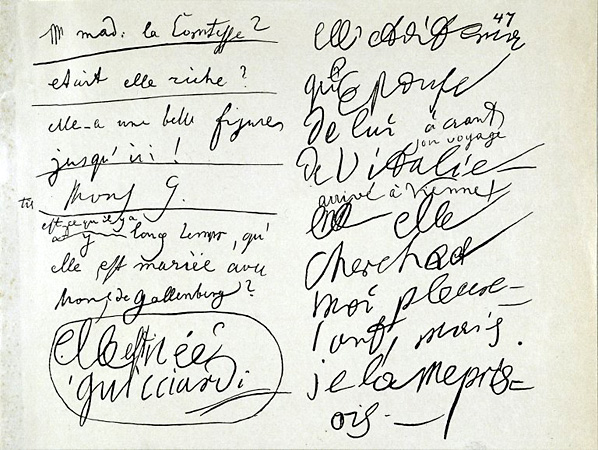 mad: la Comtesse?
etait elle riche?
elle a une belle figures
jusqu'ici!
Mons G.
est ce qu'il y a
long temps, qu'
elle est mariée avec
Mons de Gallenberg?
Elle est née
guicciardi
47
qu'Epouse
de lui avant
son voyage
de l'Italie –
arrivé à Vienne
elle
cherchoit
moi pleure-
ant, mais
je la mepris-
ois. –